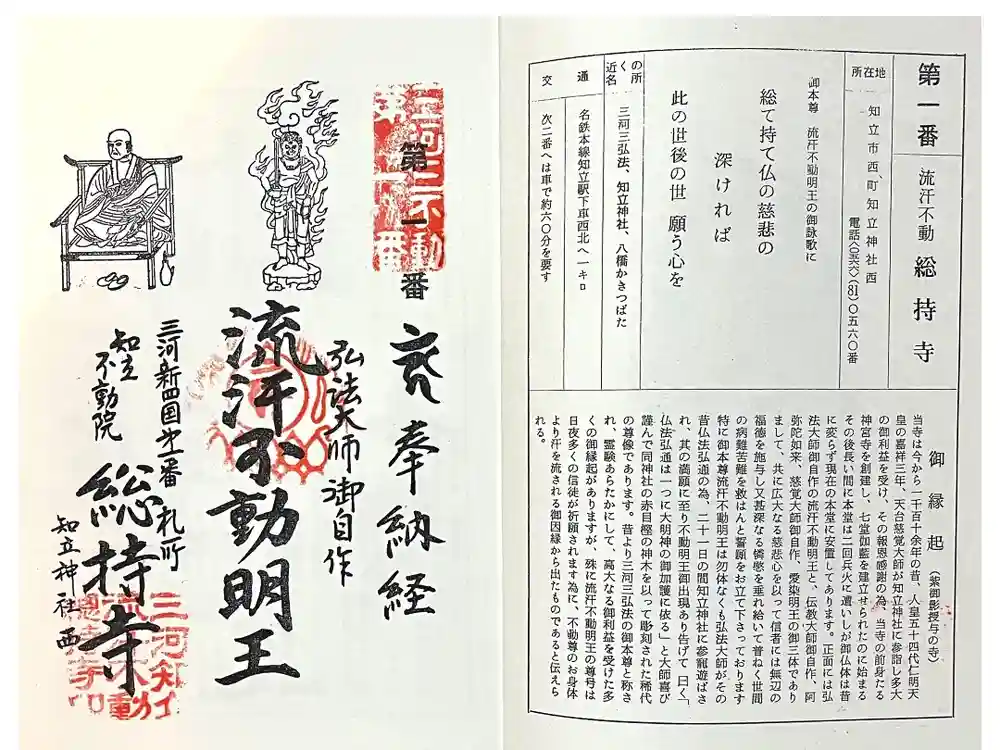 第一番
流汗不動
総持寺
所在地
知立市西町知立神社西
電話(〇五六六)(81)〇五六〇番
御本尊 流汗不動明王の御詠歌に
総て持て仏の慈悲の
深ければ
此の世後の世 願う心を
近くの名所
三河三弘法、知立神社、八橋かきつばた
交通
名鉄本線知立駅下車西北へ一キロ
次二番へは車で約六〇分を要す
御縁起(紫御影授与の寺)
当寺は今から一千百十余年の昔、人皇五十四代仁明天
皇の嘉祥三年、天台慈覚大師が知立神社に参詣し多大
の御利益を受け、その報恩感謝の為、当寺の前身たる
神宮寺を創建し、七堂伽藍を建立せられたのに始まる
その後長い間に本堂は二回兵火に遭いしが御仏体は昔
に変らず現在の本堂に安置してあります。正面には弘
法大師御自作の流汗不動明王と、伝教大師御自作、阿
弥陀如来、慈覚大師御自作、愛染明王の御三体であり
まして、共に広大なる慈悲心を以って信者には無辺の
福徳を施与し又甚深なる憐愍を垂れ給いて普ねく世間
の病難苦難を救はんと誓願をお立て下さっております
特に御本尊流汗不動明王は勿体なくも弘法大師がその
昔仏法弘通の為、二十一日の間知立神社に参籠遊ばさ
れ、其の満願に至り不動明王御出現あり告げて 曰く「
仏法弘通は一つに大明神の御加護に依る」と大師喜び
謹んで同神社の赤目樫の神木を以って彫刻された稀代
の尊像であります。昔より三河三弘法の御本尊と称さ
れ、霊験あらたかにして、高大なる御利益を受けた多
くの御縁起がありますが、殊に流汗不動明王の尊号は
日夜多くの信徒が祈願されます為に、不動尊のお身体
より汗を流される御因縁から出たものであると伝えら
れる。
三河三不動
第一番
第一番
奉納経
弘法大師御自作
流汗不動明王
三河新四国第一番札所
知立
不動院
総持寺
知立神社西